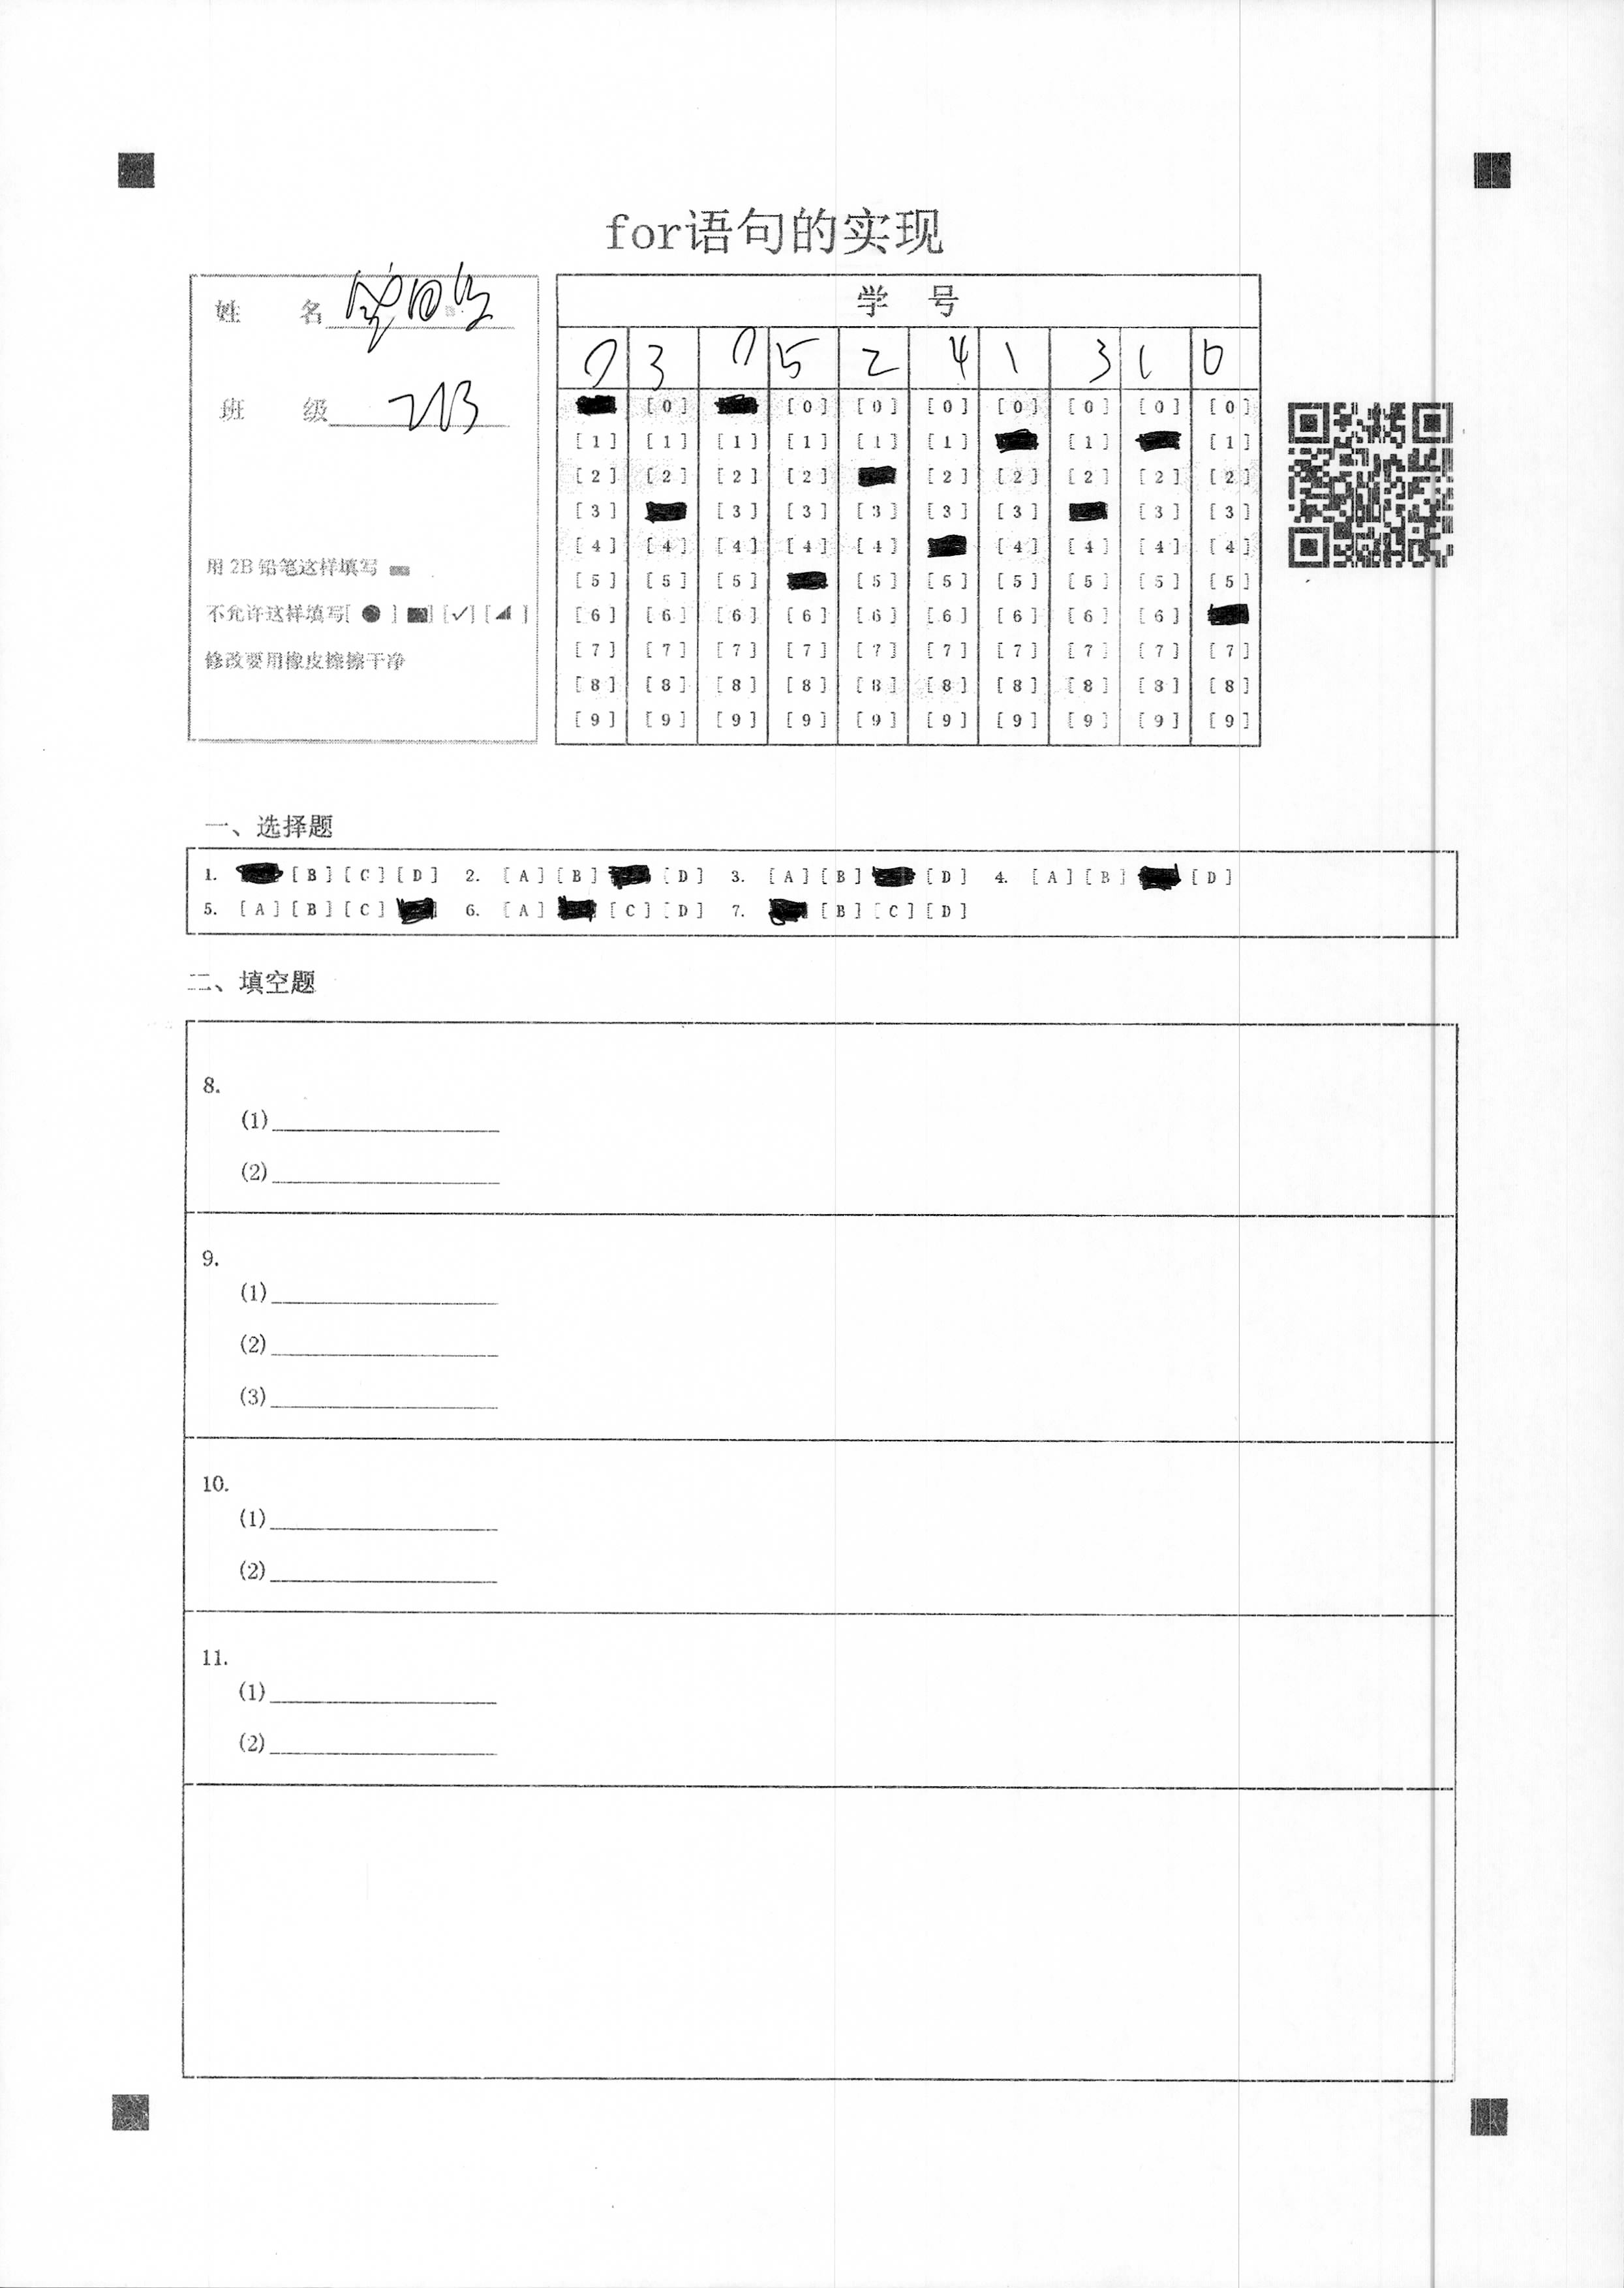 for语句的实现
姓 名
班 级
用 2B 铅笔这样填写
不允许这样填写[ ● ] [■] [✓] [◢ ]
修改要用橡皮擦擦干净
学 号
0 3 0 5 2 4 1 3 1 6
[0] [0] [0] [0] [0] [0] [0] [0]
[1] [1] [1] [1] [1] [1] [1] [1]
[2] [2] [2] [2] [2] [2] [2] [2] [2]
[3] [3] [3] [3] [3] [3] [3] [3]
[4] [4] [4] [4] [4] [4] [4] [4] [4]
[5] [5] [5] [5] [5] [5] [5] [5] [5]
[6] [6] [6] [6] [6] [6] [6] [6] [6]
[7] [7] [7] [7] [7] [7] [7] [7] [7] [7]
[8] [8] [8] [8] [8] [8] [8] [8] [8] [8]
[9] [9] [9] [9] [9] [9] [9] [9] [9] [9]
一、选择题
1. [B] [C] [D] 2. [A] [B] [D] 3. [A] [B] [D] 4. [A] [B] [D]
5. [A] [B] [C] 6. [A] [C] [D] 7. [B] [C] [D]
二、填空题
8.
(1)
(2)
9.
(1)
(2)
(3)
10.
(1)
(2)
11.
(1)
(2)